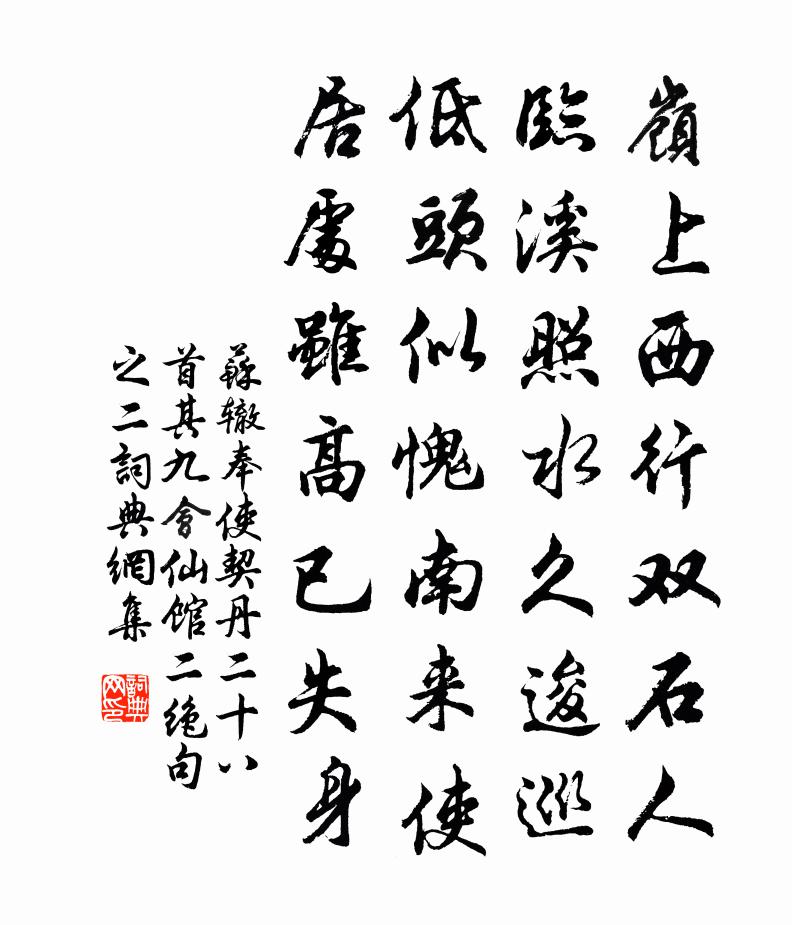 嶺上西行双石人
臨溪照水久逡巡
低頭似愧南来使
居處雖高已失身
蘇辙奉使契丹二十八
首其九會仙馆二絶句
之二詞典網集
詞典网印